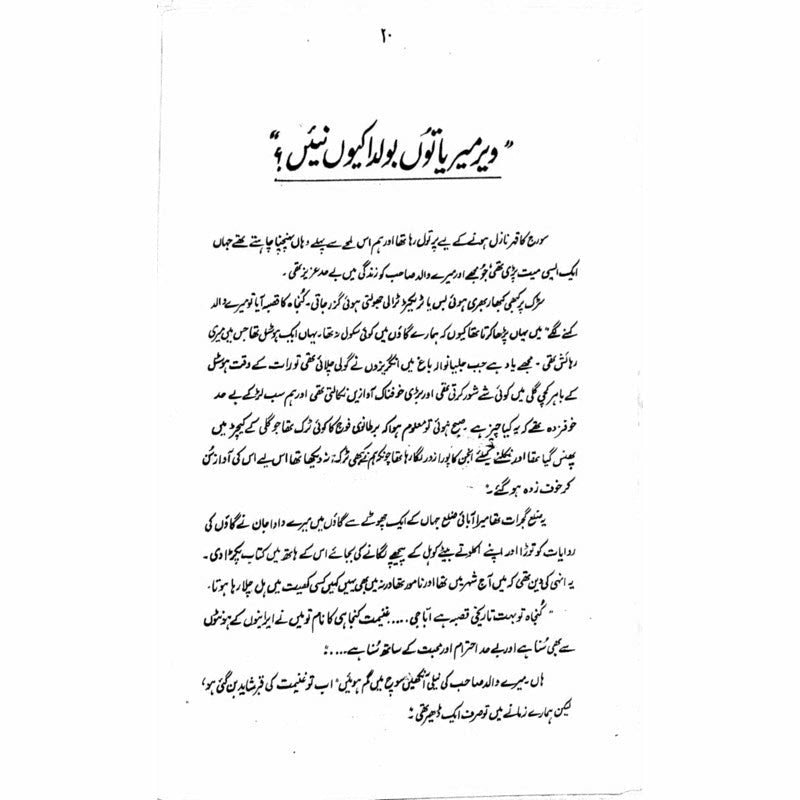 ۲۰
"ویر میریا توں بولدا کیوں نئیں؟"
سورج کا قہر نازل ہونے کے لیے پر تول رہا تھا اور ہم اس لمحے سے پہلے وہاں پہنچنا چاہتے تھے جہاں
ایک ایسی میت پڑی تھی جو مجھے اور میرے والد صاحب کو زندگی میں بے حد عزیز تھی۔
سڑک پر کبھی کبھار بھری ہوئی بس یا ٹریکٹر ٹرالی جھولتی ہوئی گزر جاتی۔ کُنجاہ کا قصبہ آیا تو میرے والد
کہنے لگے "میں یہاں پڑھا کرتا تھا کیوں کہ ہمارے گاؤں میں کوئی سکول نہ تھا۔ یہاں ایک ہوسٹل تھا جس میں میری
رہائش تھی۔ مجھے یاد ہے جب جلیانوالہ باغ میں انگریزوں نے گولی چلائی تھی تو رات کے وقت ہوسٹل
کے باہر کچی گلی میں کوئی شے شور کرتی تھی اور بڑی خوفناک آوازیں نکالتی تھی اور ہم سب لڑکے بے حد
خوفزدہ تھے کہ یہ کیا چیز ہے۔ صبح ہوئی تو معلوم ہوا کہ برطانوی فوج کا کوئی ٹرک تھا جو گلی کے کیچڑ میں
پھنس گیا تھا اور نکلنے کیلئے انجن کا پورا زور لگا رہا تھا چونکہ ہم نے کبھی ٹرک نہ دیکھا تھا اس لیے اس کی آواز سُن
کر خوف زدہ ہو گئے۔"
یہ ضلع گجرات تھا میرا آبائی ضلع جہاں کے ایک چھوٹے سے گاؤں میں میرے دادا جان نے گاؤں کی
روایات کو توڑا اور اپنے اکلوتے بیٹے کو ہل کے پیچھے لگانے کی بجائے اس کے ہاتھ میں کتاب پکڑا دی۔
یہ انہی کی دین تھی کہ میں آج شہر میں تھا اور نامور تھا ورنہ میں بھی یہیں کہیں کسی کھیت میں ہل چلا رہا ہوتا۔
"کُنجاہ تو بہت تاریخی قصبہ ہے ابّا جی..... غنیمت کنجاہی کا نام تو میں نے ایرانیوں کے ہونٹوں
سے بھی سُنا ہے اور بے حد احترام اور محبت کے ساتھ سُنا ہے....."
ہاں۔ میرے والد صاحب کی نیلی آنکھیں سوچ میں گم ہوئیں "اب تو غنیمت کی قبر شاید بن گئی ہو،
لیکن ہمارے زمانے میں تو صرف ایک ڈھیر تھی۔"